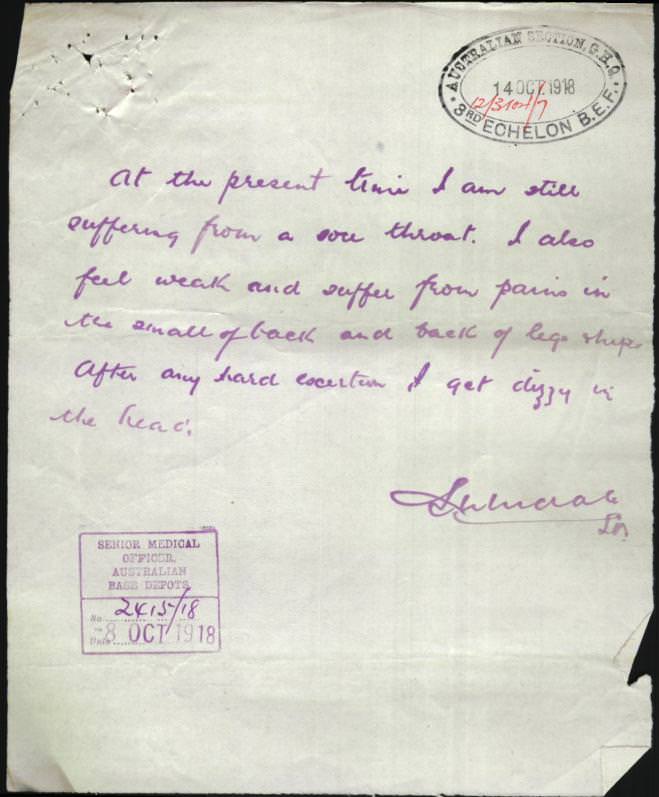 AUSTRALIAN SECTION, G.H.Q.
14 OCT. 1918
3RD ECHELON B.E.F.
At the present time I am still
suffering from a sore throat. I also
feel weak and suffer from pains in
the small of back and back of legs
After any hard excertion I get dizzy in
the head.
SENIOR MEDICAL
OFFICER,
AUSTRALIAN
BASE DEPOTS
No. 2415/18
Date 8 OCT 1918